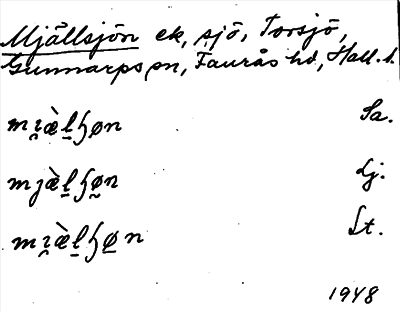 Mjällsjön ek, sjö, Torsjö,
Gunnarps sn, Faurås hd, Hall. l.
mi̯æ̀l̠ɧøn Sa.
mjæ̀l̠ɧø̠n Lj.
mi̯æ̀l̠ɧø̠n St.
1948